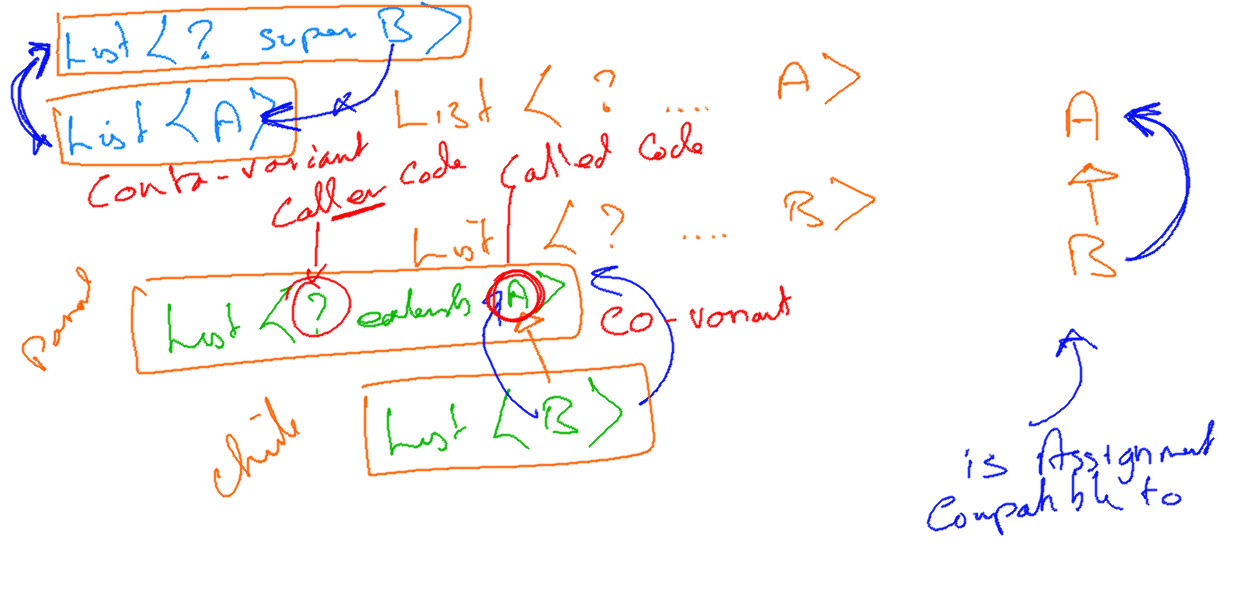 List < ? super B >
List < A >
List < ? .... A >
Contra-variant
Caller code
Called Code
List < ? .... B >
parent
List < ? extends A >
Co-variant
child
List < B >
A
B
is Assignment
Compatible to